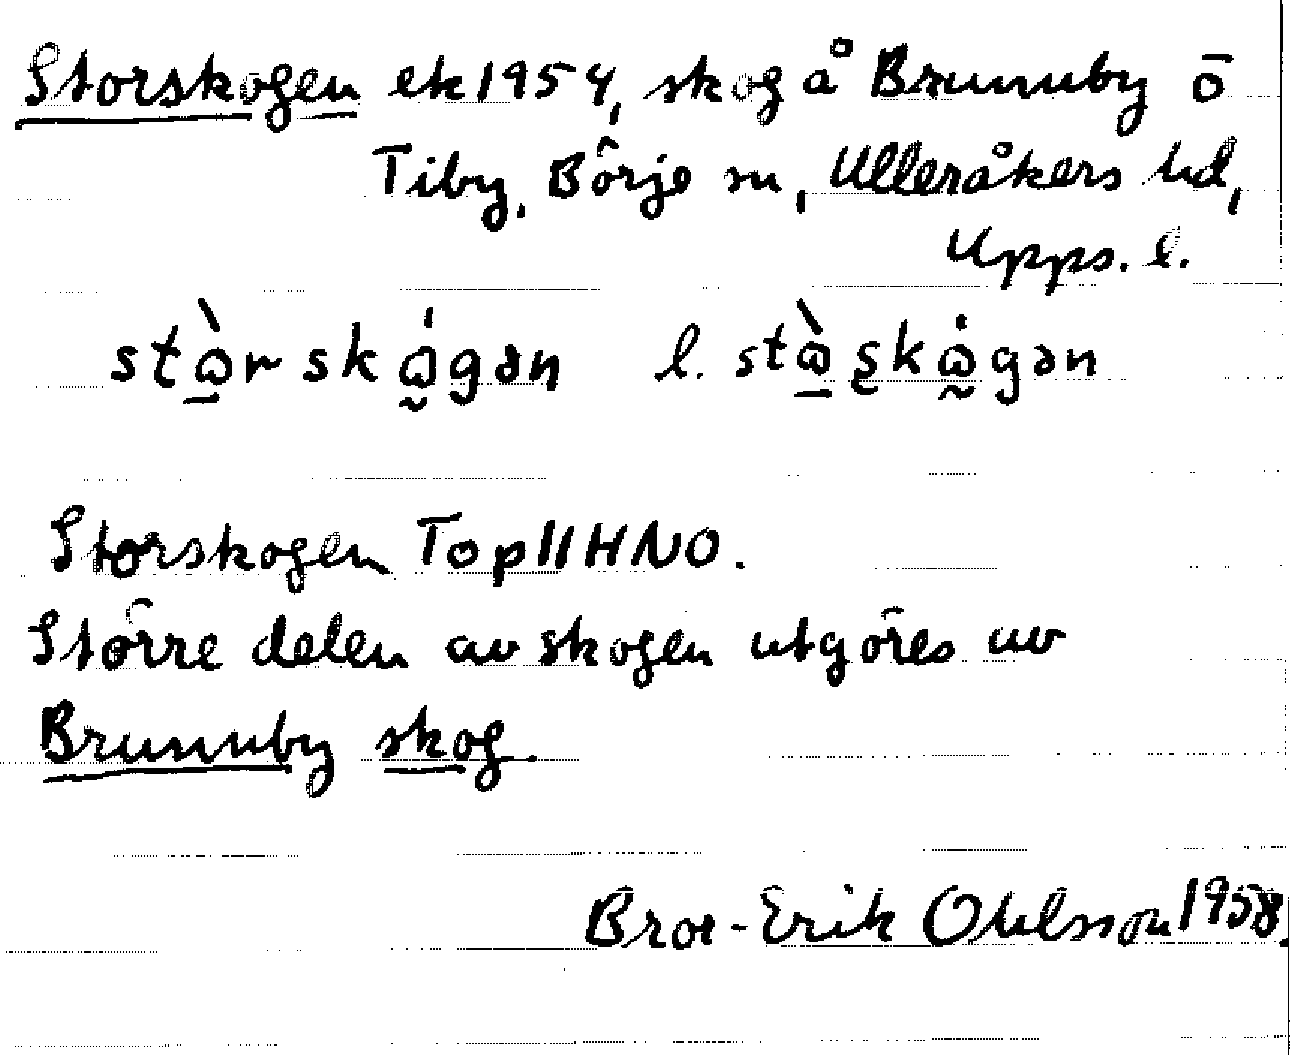 Storskogen ek 1954, skog å Brunnby o
Tiby, Börje sn, Ulleråkers hd,
Upps. l.
l.
Storskogen Top 11 H NO.
Större delen av skogen utgöres av
Brunnby skog.
Bror-Erik Ohlsson 1958.